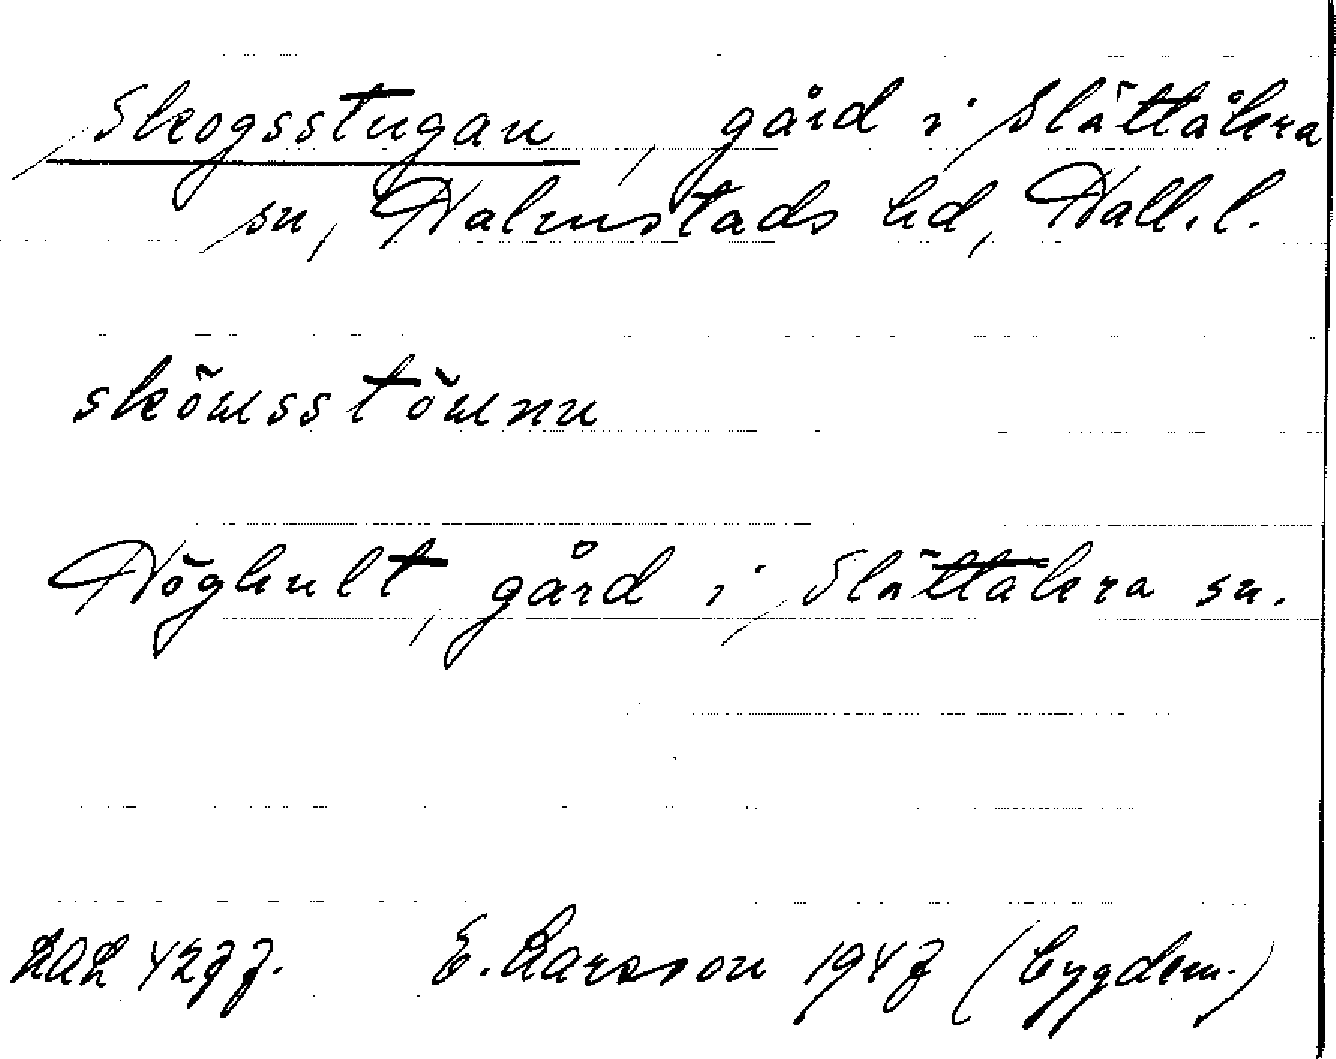 Skogsstugan, gård i Slättåkra
sn, Halmstads hd, Hall.l.
Höghult, gård i Slättåkra sn.
E. Larsson 1947 (bygdem.)